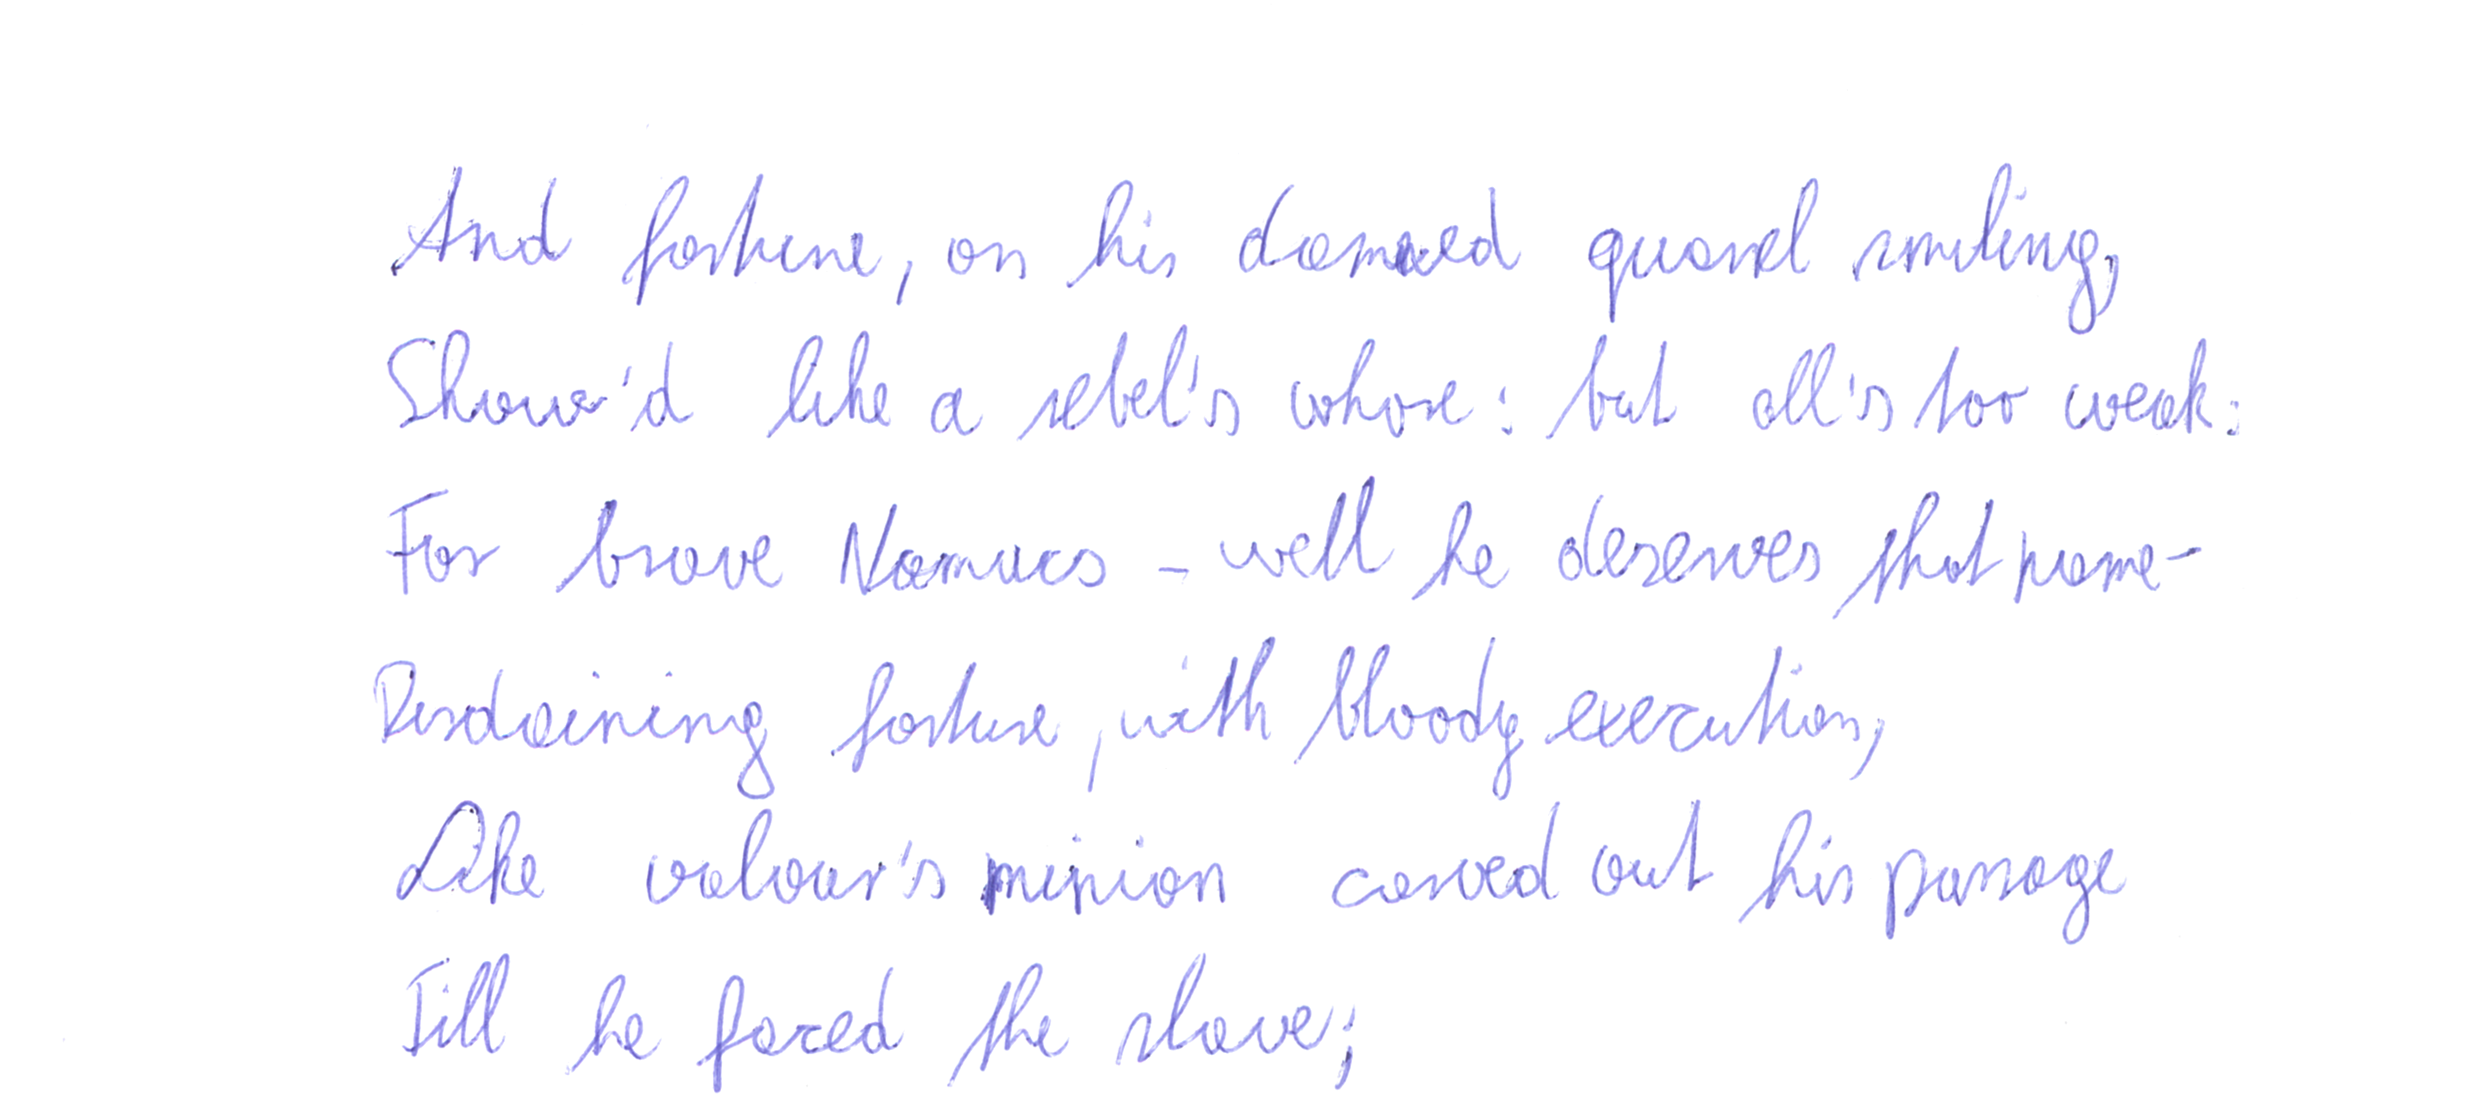 And fortune, on his damned quarrel smiling,
Show'd like a rebel's whore: but all's too weak:
For brave Namucs - well he deserves that name-
Disdaining fortune, with bloody execution,
Like valour's minion carved out his passage
Till he faced the slave;